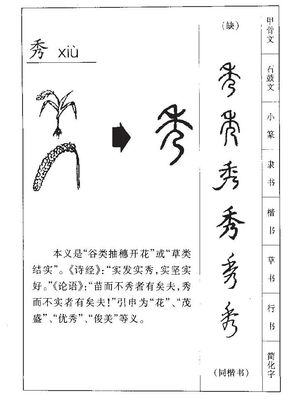 秀 xiù
本义是“谷类抽穗开花”或“草类
结实”。《诗经》：“实发实秀，实坚实
好。”《论语》：“苗而不秀者有矣夫，秀
而不实者有矣夫！”引申为“花”、“茂
盛”、“优秀”、“俊美”等义。
秀
（缺）
秀
秀
秀
秀
秀
秀
（同楷书）
甲骨文
石鼓文
小篆
隶书
楷书
草书
行书
简化字